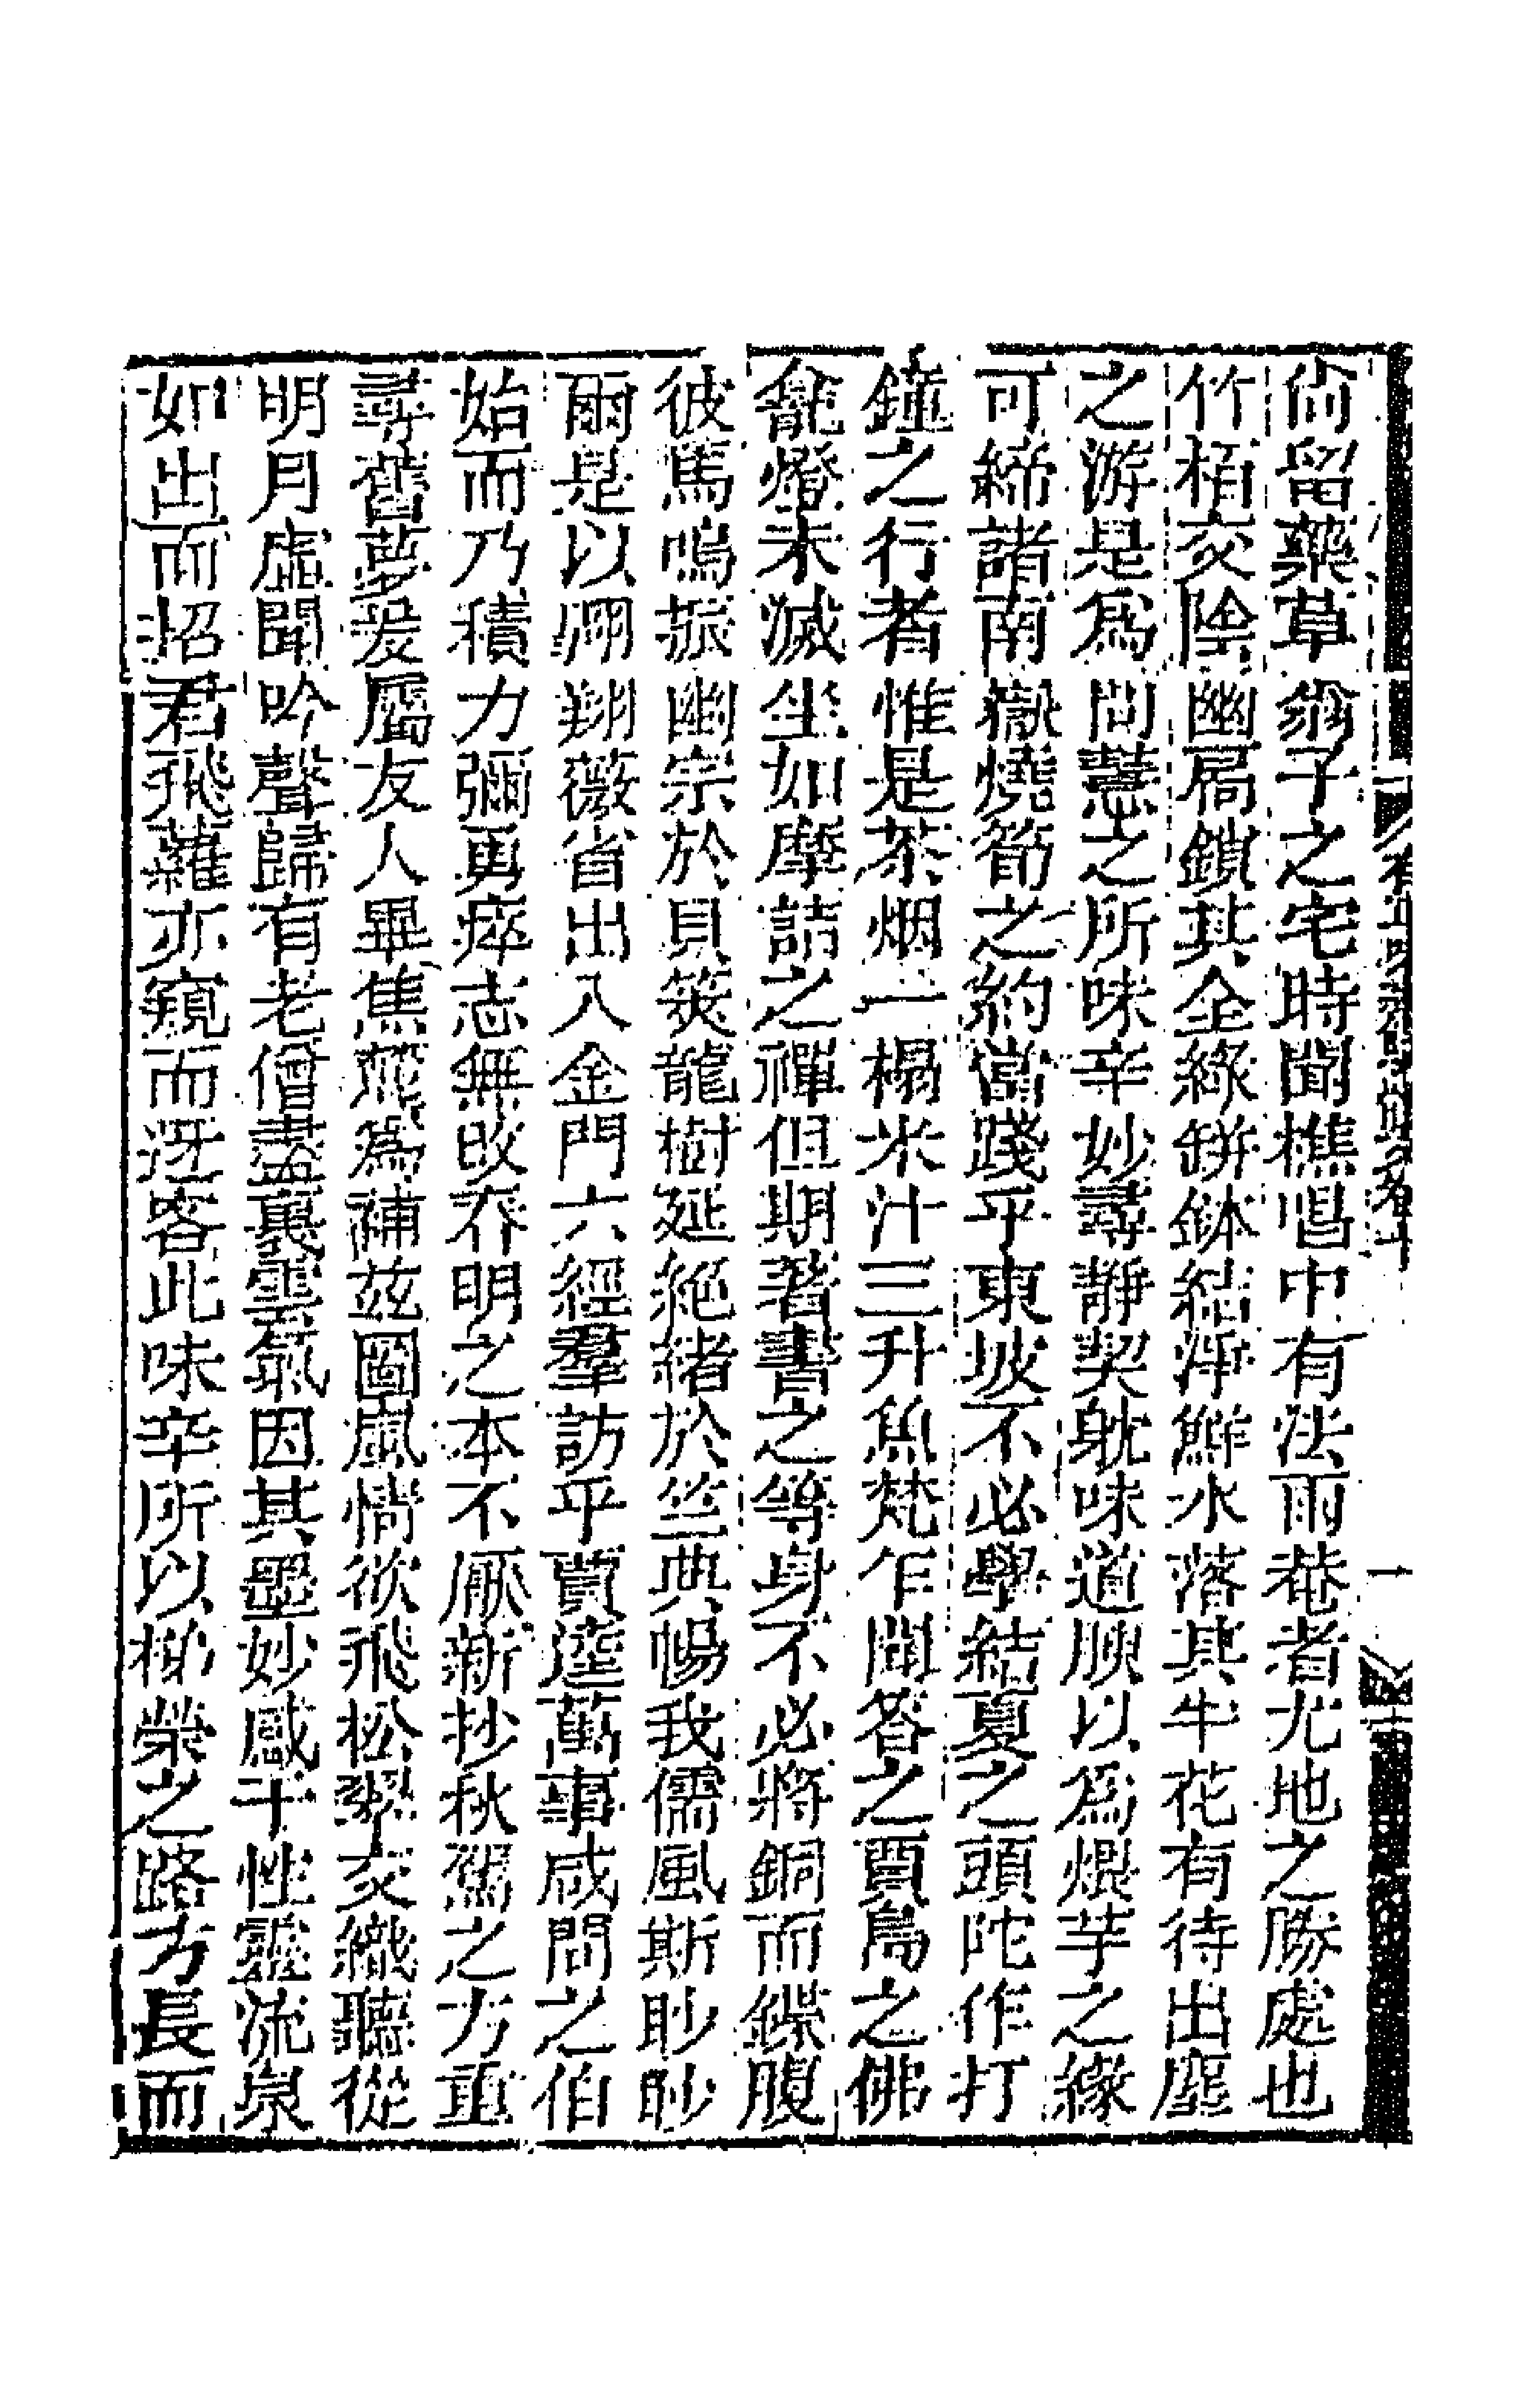 尙留藥草翁子之宅時聞樵唱中有法雨菴者尤地之勝處也
竹栢交陰幽扃鎖其全綠缾鉢結淨鮮水落其牛花有待出塵
之游是爲問慧之所味辛妙尋靜契躭味道腴以爲煨芋之緣
可締諸南嶽燒筍之約當踐乎東坡不必學結夏之頭陀作打
鐘之行者惟是茶烟一榻米汁三升魚梵乍聞答之賈島之佛
龕燈未滅坐如摩詰之禪但期著書之等身不必將銅而鍱腹
彼馬鳴振幽宗於貝筴龍樹延絕緒於竺典暢我儒風斯眇眇
爾是以翺翔薇省出入金門六經羣訪乎賈逵萬事咸問之伯
始而乃積力彌勇瘁志無攺夲明之本不厭新抄秋駕之方重
尋舊夢爰屬友人畢焦麓爲補茲圖嵐情欲飛松翠交織聽從
明月虛聞吟聲歸有老僧盡裹雲氣因其墨妙感乎性靈流泉
如出而招君飛蘿亦窺而迓客此味辛所以枌榮之路方長而
一